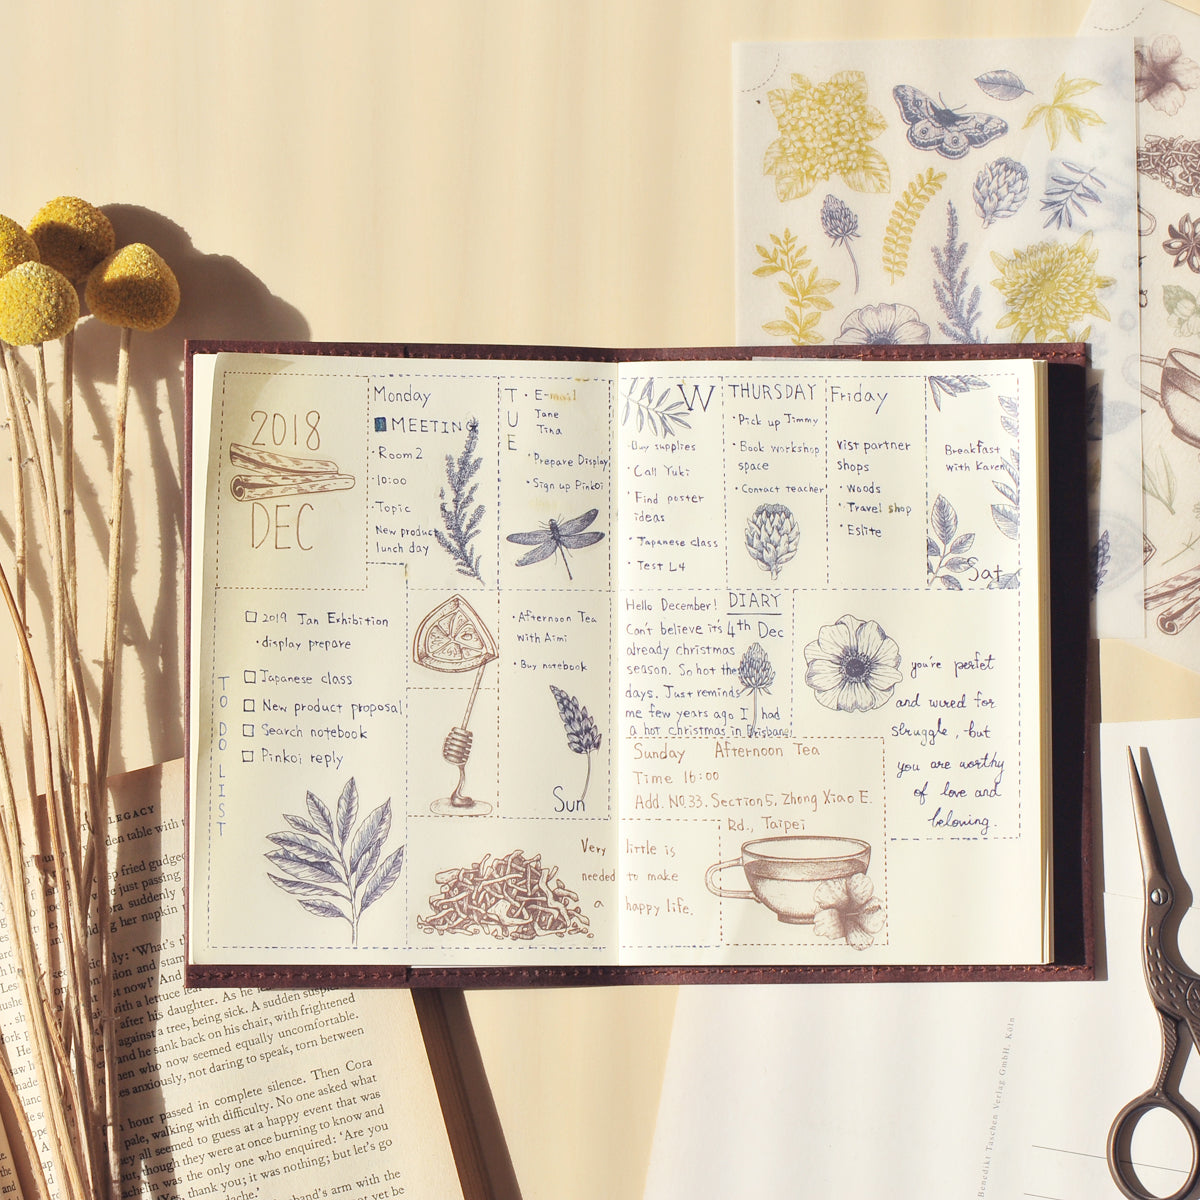 2018
DEC
Monday
MEETING
·Room 2
·10:00
·Topic
New product
lunch day
TUE
·E-mail
Jane
Tina
·Prepare Display
·Sign up Pinkoi
W
·Buy supplies
·Call Yuki
·Find poster
ideas
·Japanese class
·Test L4
THURSDAY
·Pick up Jimmy
·Book workshop
space
·Contact teacher
Friday
Visit partner
shops
·Woods
·Travel shop
·Eslite
Breakfast
with Karen
Sat
TO DO LIST
2019 Jan Exhibition
·display prepare
Japanese class
New product proposal
Search notebook
Pinkoi reply
·Afternoon Tea
with Aimi
·Buy notebook
Sun
Hello December! DIARY
Can't believe it's 4th Dec
already christmas
season. So hot these
days. Just reminds
me few years ago I had
a hot christmas in Brisbane!
you're perfet
and wired for
struggle, but
you are worthy
of love and
beloving.
Sunday Afternoon Tea
Time 16:00
Add. No.33. Section5, Zhong Xiao E.
Rd., Taipei
Very little is
needed to make
a happy life.
LEGACY
den table with
fried gudgeo
just passing
ora suddenly
her napkin
'What's th
sion and stam
st now!' And
with a lettuce leaf
after his daughter. As he
against a tree, being sick. A sudden suspi
and he sank back on his chair, with frightened
men who now seemed equally uncomfortable.
anxiously, not daring to speak, torn between
hour passed in complete silence. Then Cora
pale, walking with difficulty. No one asked what
they all seemed to guess at a happy event that was
though they were at once burning to know and
was the only one who enquired: 'Are you
'Yes, thank you; it was nothing; but let's go
dache.'
husband's arm with the
not yet be
Benedikt Taschen Verlag GmbH, Köln